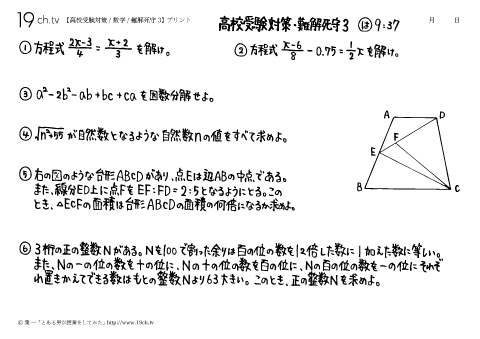 19 ch.tv 【高校受験対策/数学/難解死守3】プリント
高校受験対策・難解死守3 は9:37 月 日
① 方程式 (2x-3)/4 = (x+2)/3 を解け。
② 方程式 (x-6)/8 - 0.75 = 1/2 x を解け。
③ a²-2b²-ab+bc+ca を因数分解せよ。
④ √(n²+55) が自然数となるような自然数nの値をすべて求めよ。
⑤ 右の図のような台形ABCDがあり、点Eは辺ABの中点である。
また、線分ED上に点FをEF:FD=2:5となるようにとる。この
とき、△ECFの面積は台形ABCDの面積の何倍になるか求めよ。
A D
F
E
B C
⑥ 3桁の正の整数Nがある。Nを100で割った余りは百の位の数を12倍した数に1加えた数に等しい。
また、Nの一の位の数を十の位に、Nの十の位の数を百の位に、Nの百の位の数を一の位にそれぞ
れ置きかえてできる数はもとの整数Nより63大きい。このとき、正の整数Nを求めよ。
© 葉一「とある男が授業をしてみた」http://www.19ch.tv